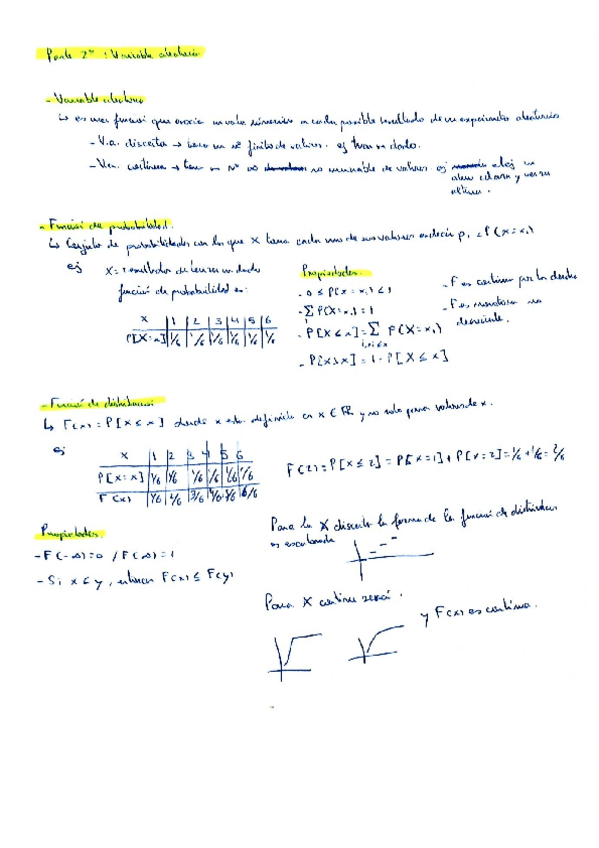 Parte 2ª: Variable aleatoria
- Variable aleatoria
↳ es una función que asocia un valor numérico a cada posible resultado de un experimento aleatorio
- V.a. discreta → toma un nº finito de valores. ej tirar un dado.
- V.a. continua → toma un nº ∞ no numerable de valores. ej
- Función de probabilidad.
↳ Conjunto de probabilidades con los que X toma cada uno de sus valores es decir pᵢ = P(X=xᵢ)
ej X = resultados de lanzar un dado
función de probabilidad es:
X | 1 | 2 | 3 | 4 | 5 | 6
P[X=x] | 1/6 | 1/6 | 1/6 | 1/6 | 1/6 | 1/6
Propiedades.
- 0 ≤ P[X=xᵢ] ≤ 1
- ∑ P(X=xᵢ) = 1
- P[X≤x] = ∑ P(X=xᵢ)
i, xᵢ ≤ x
- P[X>x] = 1 - P[X≤x]
- F es continua por la derecha
- F es monótona no
decreciente.
- Función de distribución
↳ F(x) = P[X≤x] donde x está definido en x ∈ ℝ y no solo para valores de x.
ej
X | 1 | 2 | 3 | 4 | 5 | 6
P[X=x] | 1/6 | 1/6 | 1/6 | 1/6 | 1/6 | 1/6
F(x) | 1/6 | 2/6 | 3/6 | 4/6 | 5/6 | 6/6
F(2) = P[X≤2] = P[X=1] + P[X=2] = 1/6 + 1/6 = 2/6
Propiedades.
- F(-∞)=0 / F(∞)=1
- Si x≤y, entonces F(x) ≤ F(y)
Para la X discreta la forma de la función de distribución
es escalonada
Para X continua será.
y F(x) es continua.